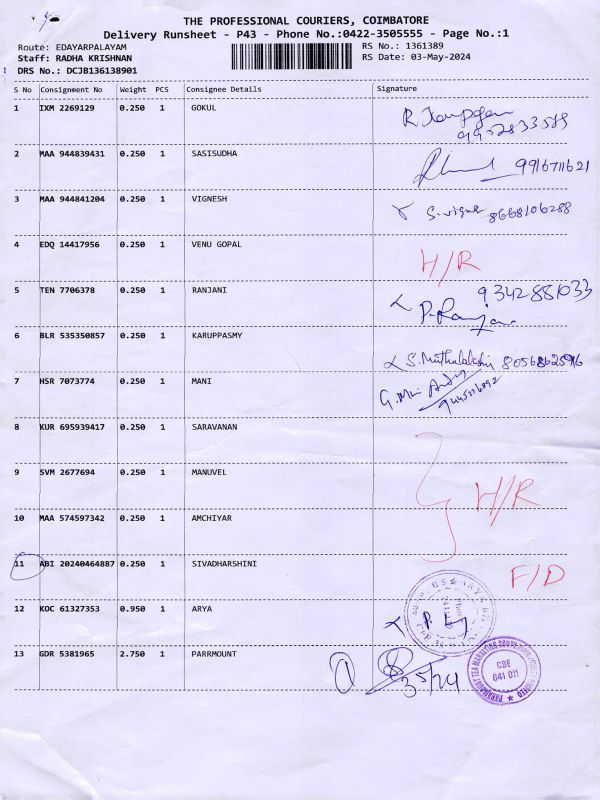 THE PROFESSIONAL COURIERS, COIMBATORE
Delivery Runsheet - P43 - Phone No.:0422-3505555 - Page No.:1
Route: EDAYARPALAYAM RS No.: 1361389
Staff: RADHA KRISHNAN RS Date: 03-May-2024
DRS No.: DCJB136138901
S No Consignment No Weight PCS Consignee Details Signature
1 IXM 2269129 0.250 1 GOKUL
2 MAA 944839431 0.250 1 SASISUDHA 9916711621
3 MAA 944841204 0.250 1 VIGNESH 8668106288
4 EDQ 14417956 0.250 1 VENU GOPAL H/R
5 TEN 7706378 0.250 1 RANJANI 9342881033
6 BLR 535350857 0.250 1 KARUPPASMY
7 HSR 7073774 0.250 1 MANI
8 KUR 695939417 0.250 1 SARAVANAN
9 SVM 2677694 0.250 1 MANUVEL H/R
10 MAA 574597342 0.250 1 AMCHIYAR
11 ABI 20240464887 0.250 1 SIVADHARSHINI F/D
12 KOC 61327353 0.950 1 ARYA
13 GDR 5381965 2.750 1 PARRMOUNT
CBE
641 011